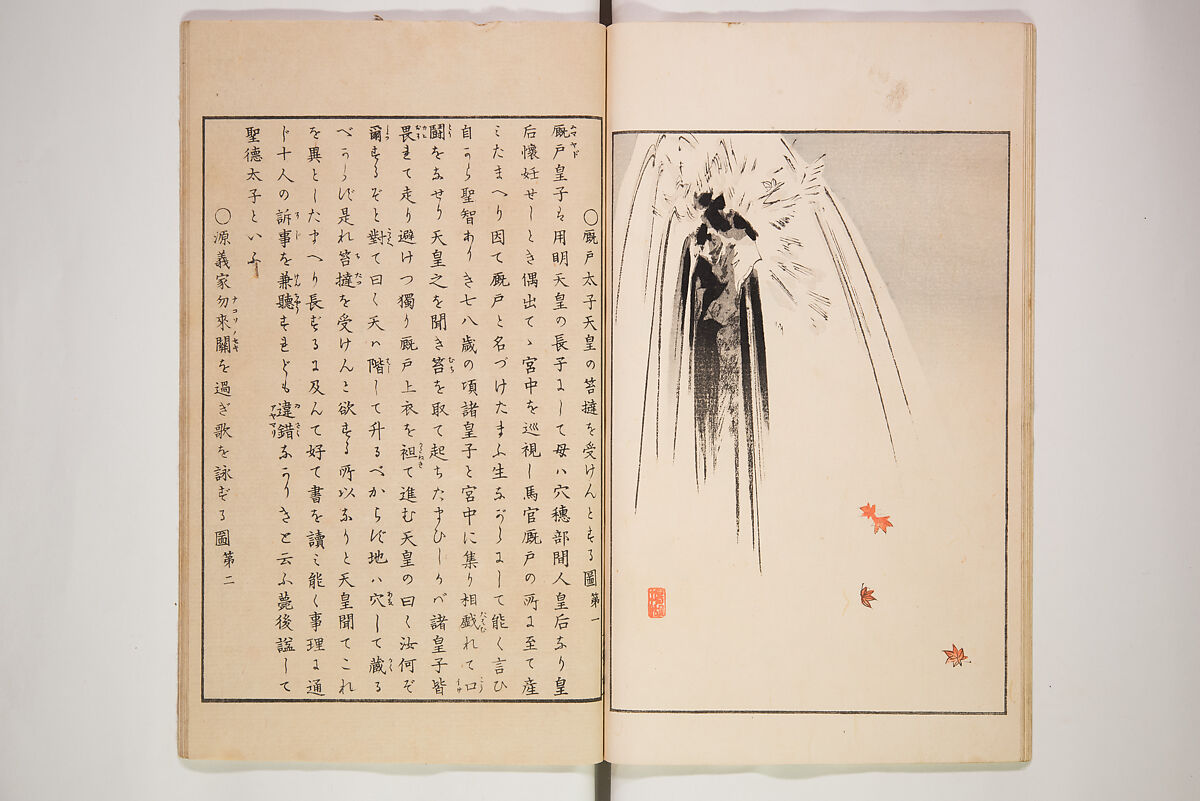 ○厩戸太子天皇の笞撻を受けんとする圖 第一
厩戸皇子は用明天皇の長子にして母ハ穴穗部間人皇后なり皇
后懷妊せしとき偶出てゝ宮中を巡視し馬官厩戸の所に至て産
みたまへり因て厩戸と名づけたまふ生ながらにして能く言ひ
自から聖智ありき七八歳の項諸皇子と宮中に集り相戯れて口
鬪をなせり天皇之を聞き笞を取て起ちたまひしかバ諸皇子皆
畏れて走り避けつ獨り厩戸上衣を袒て進む天皇の曰く汝何ぞ
爾するぞと對て曰く天ハ階して升るべからず地ハ穴して藏る
べからず是れ笞撻を受けんと欲する所以なりと天皇聞てこれ
を異としたまへり長ずるに及んて好て書を讀み能く事理に通
じ十人の訴事を兼聽すれども違錯なかりきと云ふ薨後謚して
聖德太子といふ
○源義家勿來關を過ぎ歌を詠ずる圖 第二